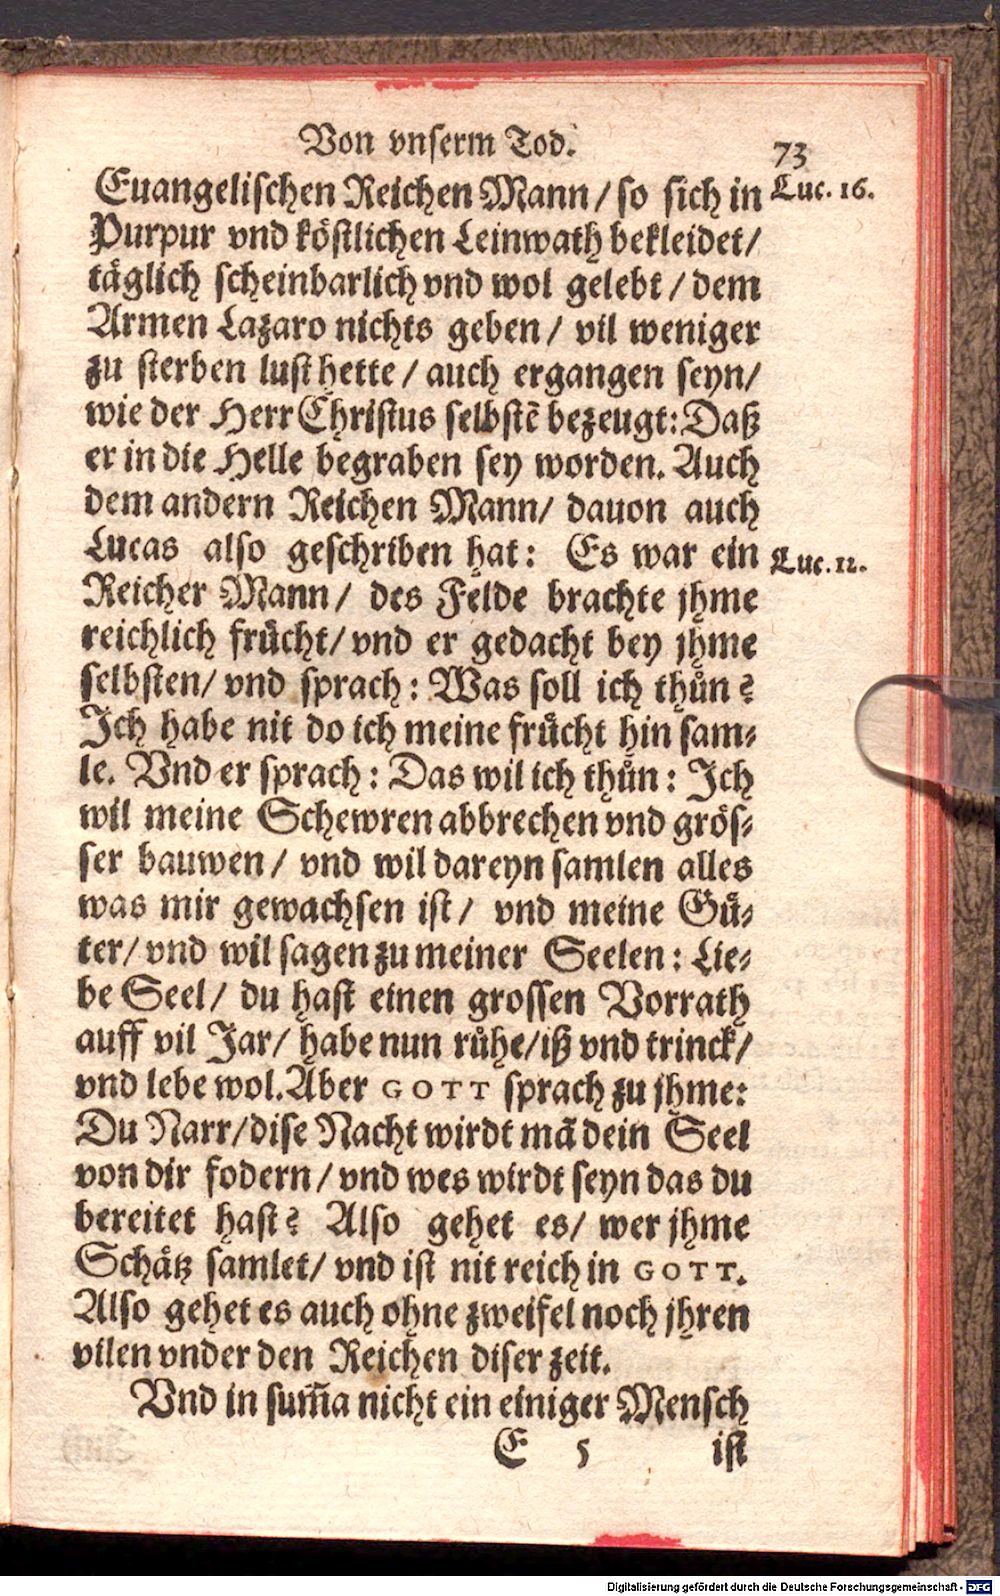 Von vnserm Tod. 73
Euangelischen Reichen Mann / so sich in Luc. 16.
Purpur vnd köstlichen Leinwath bekleidet/
täglich scheinbarlich vnd wol gelebt / dem
Armen Lazaro nichts geben / vil weniger
zu sterben lust hette / auch ergangen seyn/
wie der Herr Christus selbstē bezeugt: Daß
er in die Helle begraben sey worden. Auch
dem andern Reichen Mann/ dauon auch
Lucas also geschriben hat: Es war ein Luc. 12.
Reicher Mann/ des Felde brachte jhme
reichlich frücht/ vnd er gedacht bey jhme
selbsten/ vnd sprach: Was soll ich thůn?
Ich habe nit do ich meine frücht hin sam-
le. Vnd er sprach: Das wil ich thůn: Ich
wil meine Schewren abbrechen vnd grös-
ser bauwen/ vnd wil dareyn samlen alles
was mir gewachsen ist/ vnd meine Gü-
ter/ vnd wil sagen zu meiner Seelen: Lie-
be Seel/ du hast einen grossen Vorrath
auff vil Jar/ habe nun růhe/ iß vnd trinck/
vnd lebe wol. Aber GOTT sprach zu jhme:
Du Narr/ dise Nacht wirdt mā dein Seel
von dir fodern/ vnd wes wirdt seyn das du
bereitet hast? Also gehet es/ wer jhme
Schätz samlet/ vnd ist nit reich in GOTT.
Also gehet es auch ohne zweifel noch jhren
vilen vnder den Reichen diser zeit.
Vnd in sum̄a nicht ein einiger Mensch
E 5 ist
Digitalisierung gefördert durch die Deutsche Forschungsgemeinschaft - DFG